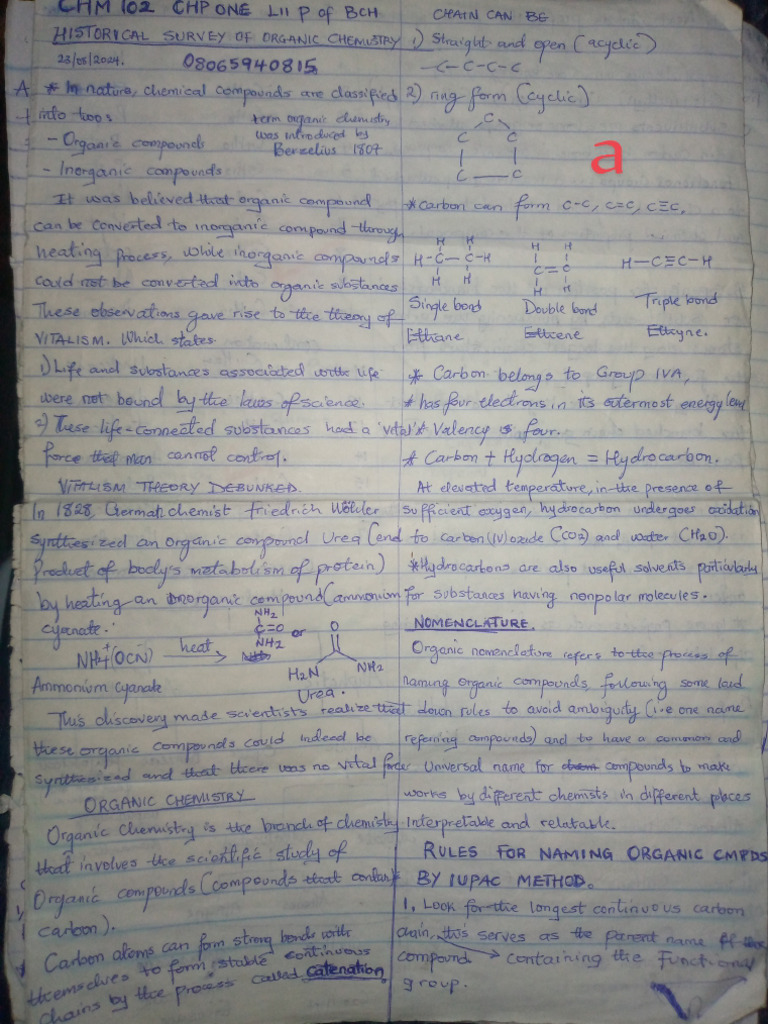 CHM 102 CHP ONE L11 P of BCH
HISTORICAL SURVEY OF ORGANIC CHEMISTRY
23/05/2024. 08065940815
A * In nature, chemical compounds are classified
into twos
- Organic compounds
- Inorganic compounds
term organic chemistry
was introduced by
Berzelius 1807
It was believed that organic compound
can be converted to inorganic compound through
heating process, while inorganic compounds
could not be converted into organic substances
These observations gave rise to the theory of
VITALISM. Which states
1) Life and substances associated with life
were not bound by the laws of science.
2) These life-connected substances had a 'vital'
force that man cannot control.
VITALISM THEORY DEBUNKED.
In 1828, German chemist Friedrich Wöhler
synthesized an organic compound Urea (end
Product of body's metabolism of protein)
by heating an inorganic compound (ammonium
cyanate.
NH4+(OCN-) heat
NH2
C=O or
NH2
O
H2N NH2
Ammonium Cyanate Urea.
This discovery made scientists realize that
these organic compounds could indeed be
synthesized and that there was no vital force
ORGANIC CHEMISTRY
Organic Chemistry is the branch of chemistry
that involves the scientific study of
Organic compounds (compounds that contain
carbon).
Carbon atoms can form strong bonds with
themselves to form stable continuous
chains by the process called catenation
CHAIN CAN BE
1) Straight and open (acyclic)
-C-C-C-C
2) ring form (cyclic)
C
C C
C C
a
* carbon can form C-C, C=C, C≡C,
H H
H-C-C-H
H H
H H
C=C
H H
H-C≡C-H
Single bond Double bond Triple bond
Ethane Ethene Ethyne.
* Carbon belongs to Group IVA,
* has four electrons in its outermost energy level
* Valency is four.
* Carbon + Hydrogen = Hydrocarbon.
At elevated temperature, in the presence of
sufficient oxygen, hydrocarbon undergoes oxidation
to carbon(IV)oxide (CO2) and water (H2O).
* Hydrocarbons are also useful solvents particularly
for substances having nonpolar molecules.
NOMENCLATURE.
Organic nomenclature refers to the process of
naming organic compounds, following some laid
down rules to avoid ambiguity (i.e one name
referring compounds) and to have a common and
Universal name for compounds to make
works by different chemists in different places
Interpretable and relatable.
RULES FOR NAMING ORGANIC CMPDS
BY IUPAC METHOD.
1. Look for the longest continuous carbon
chain, this serves as the parent name of
compound containing the Functional
group.